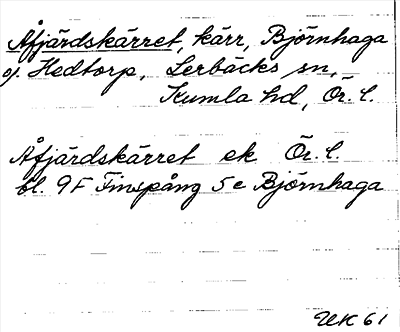 Åfjärdskärret, kärr, Björnhaga
o. Hedtorp, Lerbäcks sn,
Kumla hd, Ör. l.
Åfjärdskärret ek Ör. l.
bl. 9F Finspång 5 e Björnhaga
UK 61